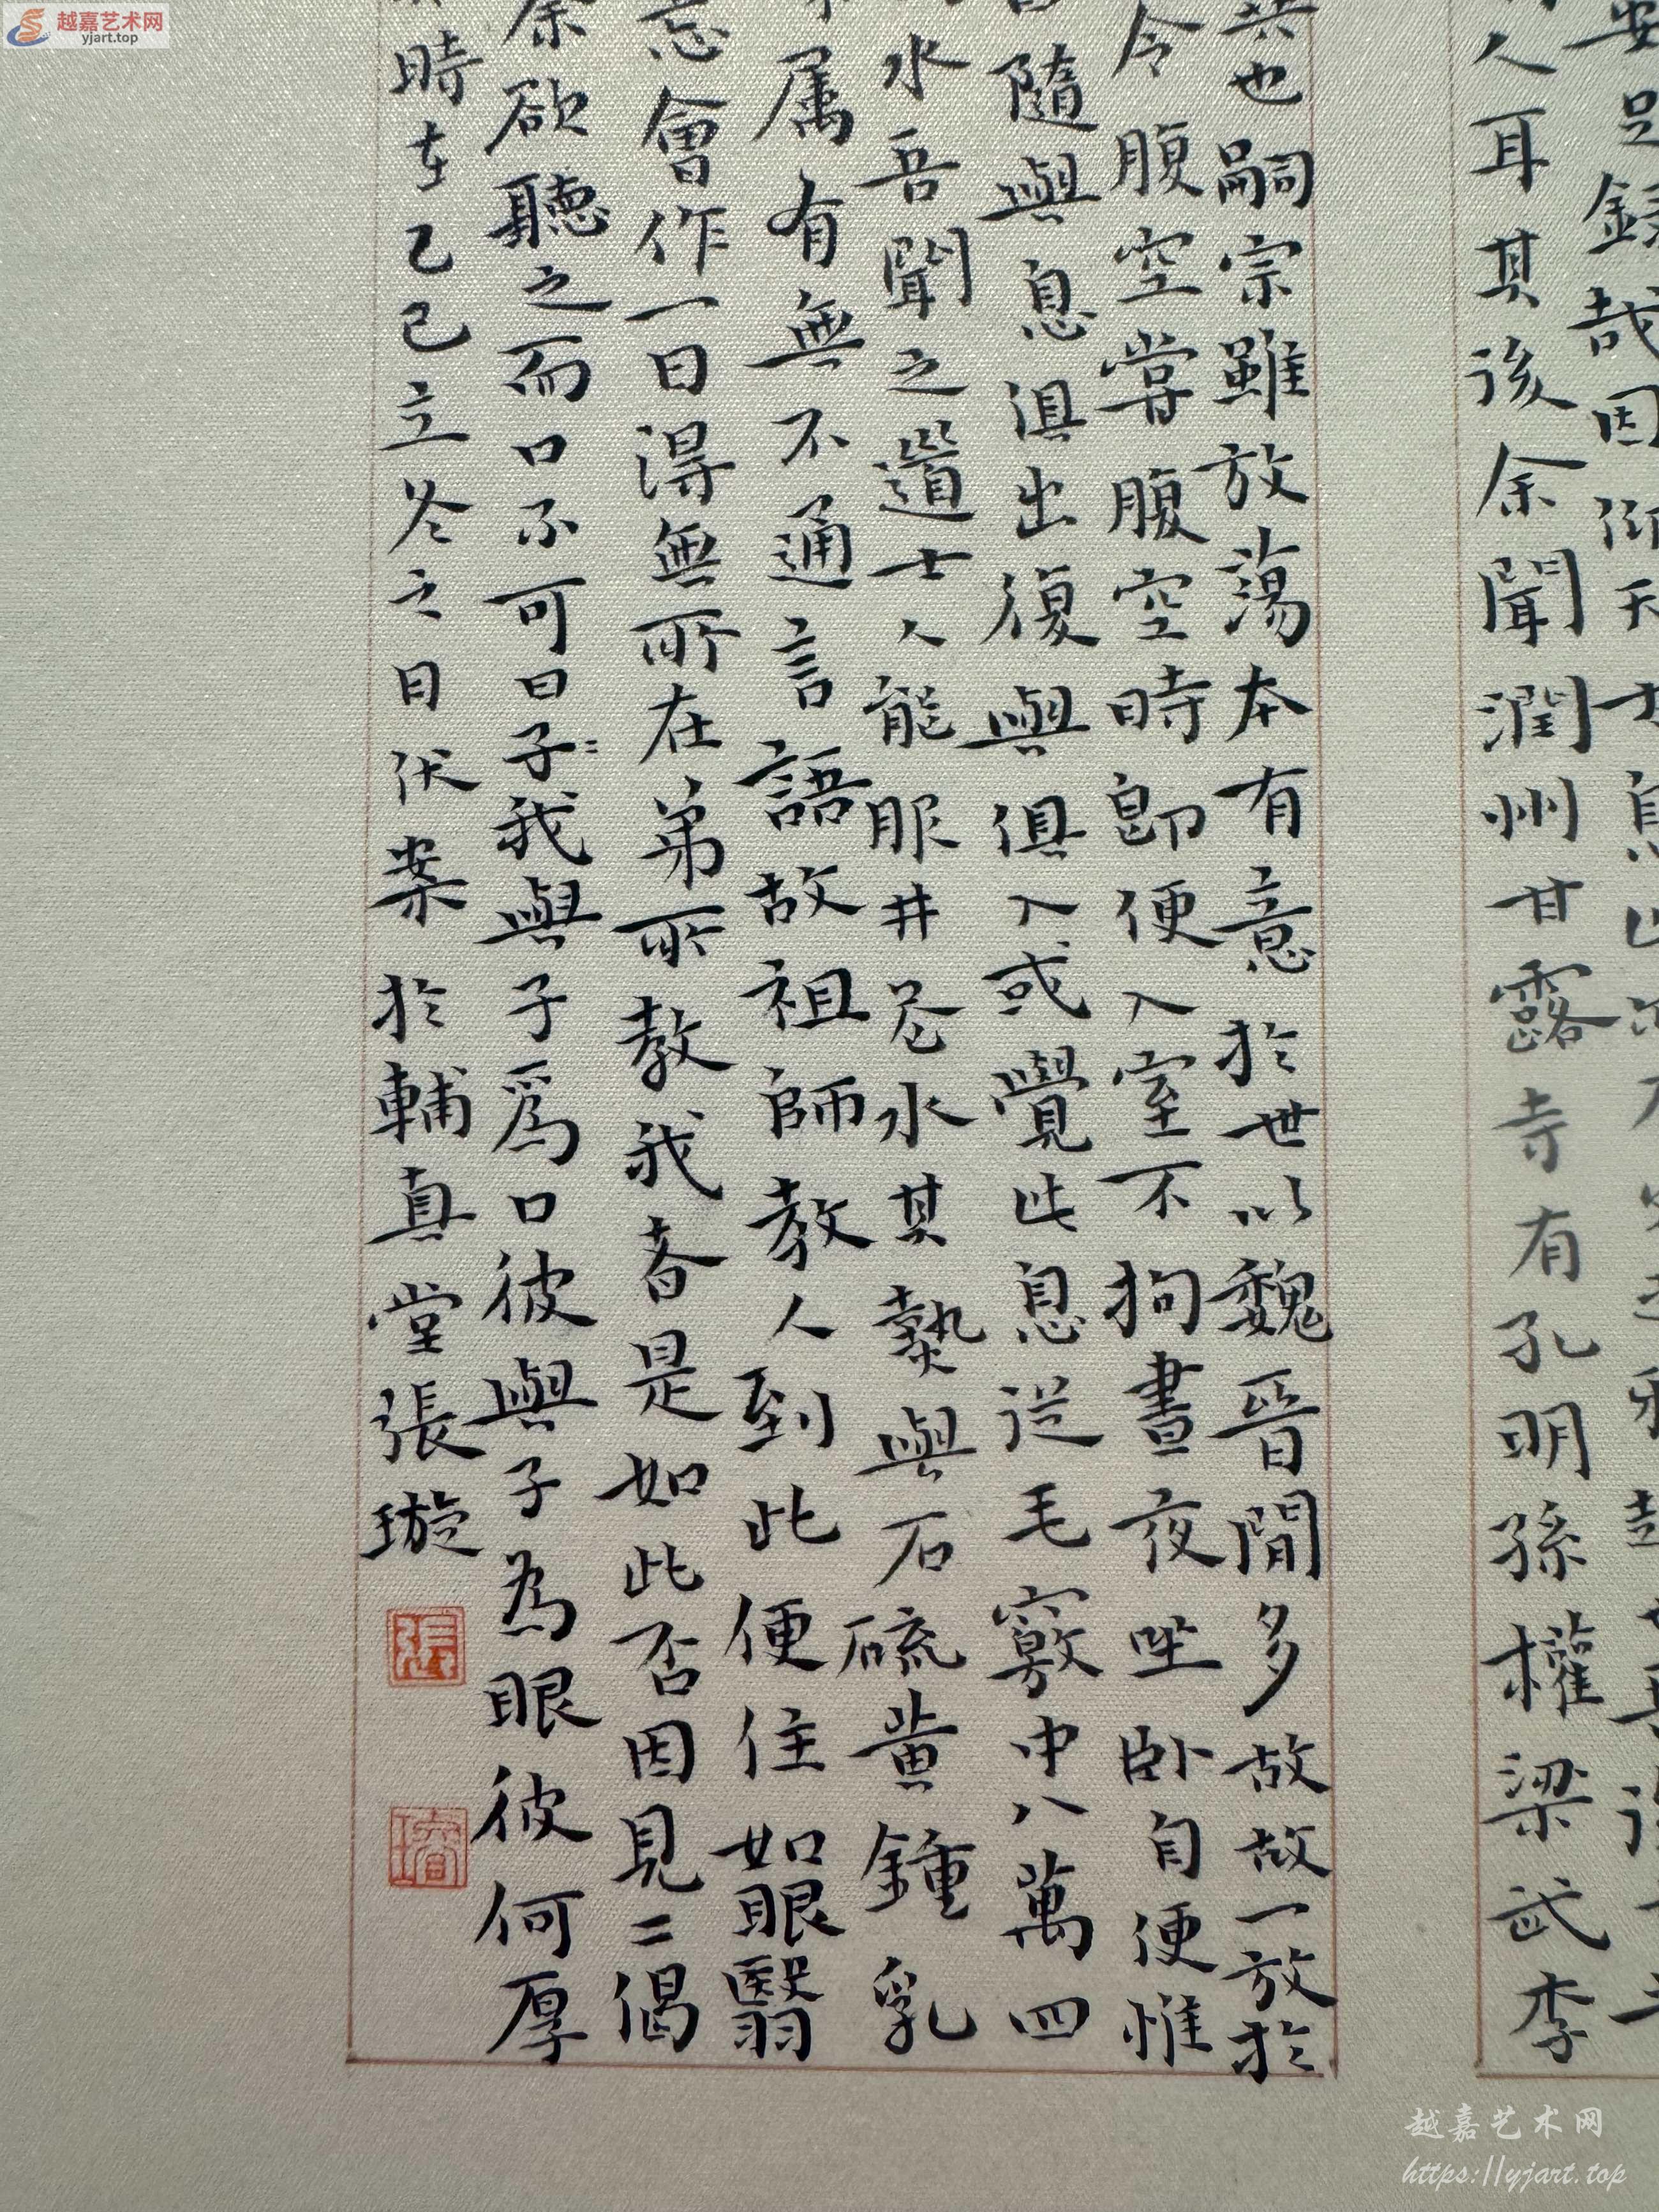 越嘉艺术网
yjart.top
安足錄哉因仰天
人耳其後余聞潤州甘露寺有孔明孫權梁武李
也嗣宗雖放蕩本有意於世以魏晉間多故故一放於
令腹空嘗腹空時即便入室不拘晝夜坐卧自便惟
隨與息俱出復與俱入或覺此息從毛竅中八萬四
水吾聞之道士人能服井花水其熱與石硫黃鍾乳
属有無不通言語故祖師教人到此便住如眼翳
忘會作一日得無所在弟所教我者是如此否因見二偈
余欲聽之而口不可曰子我與子爲口彼與子為眼彼何厚
時在乙巳立冬之日伏案於輔真堂張璇
張
越嘉艺术网
https://yjart.top